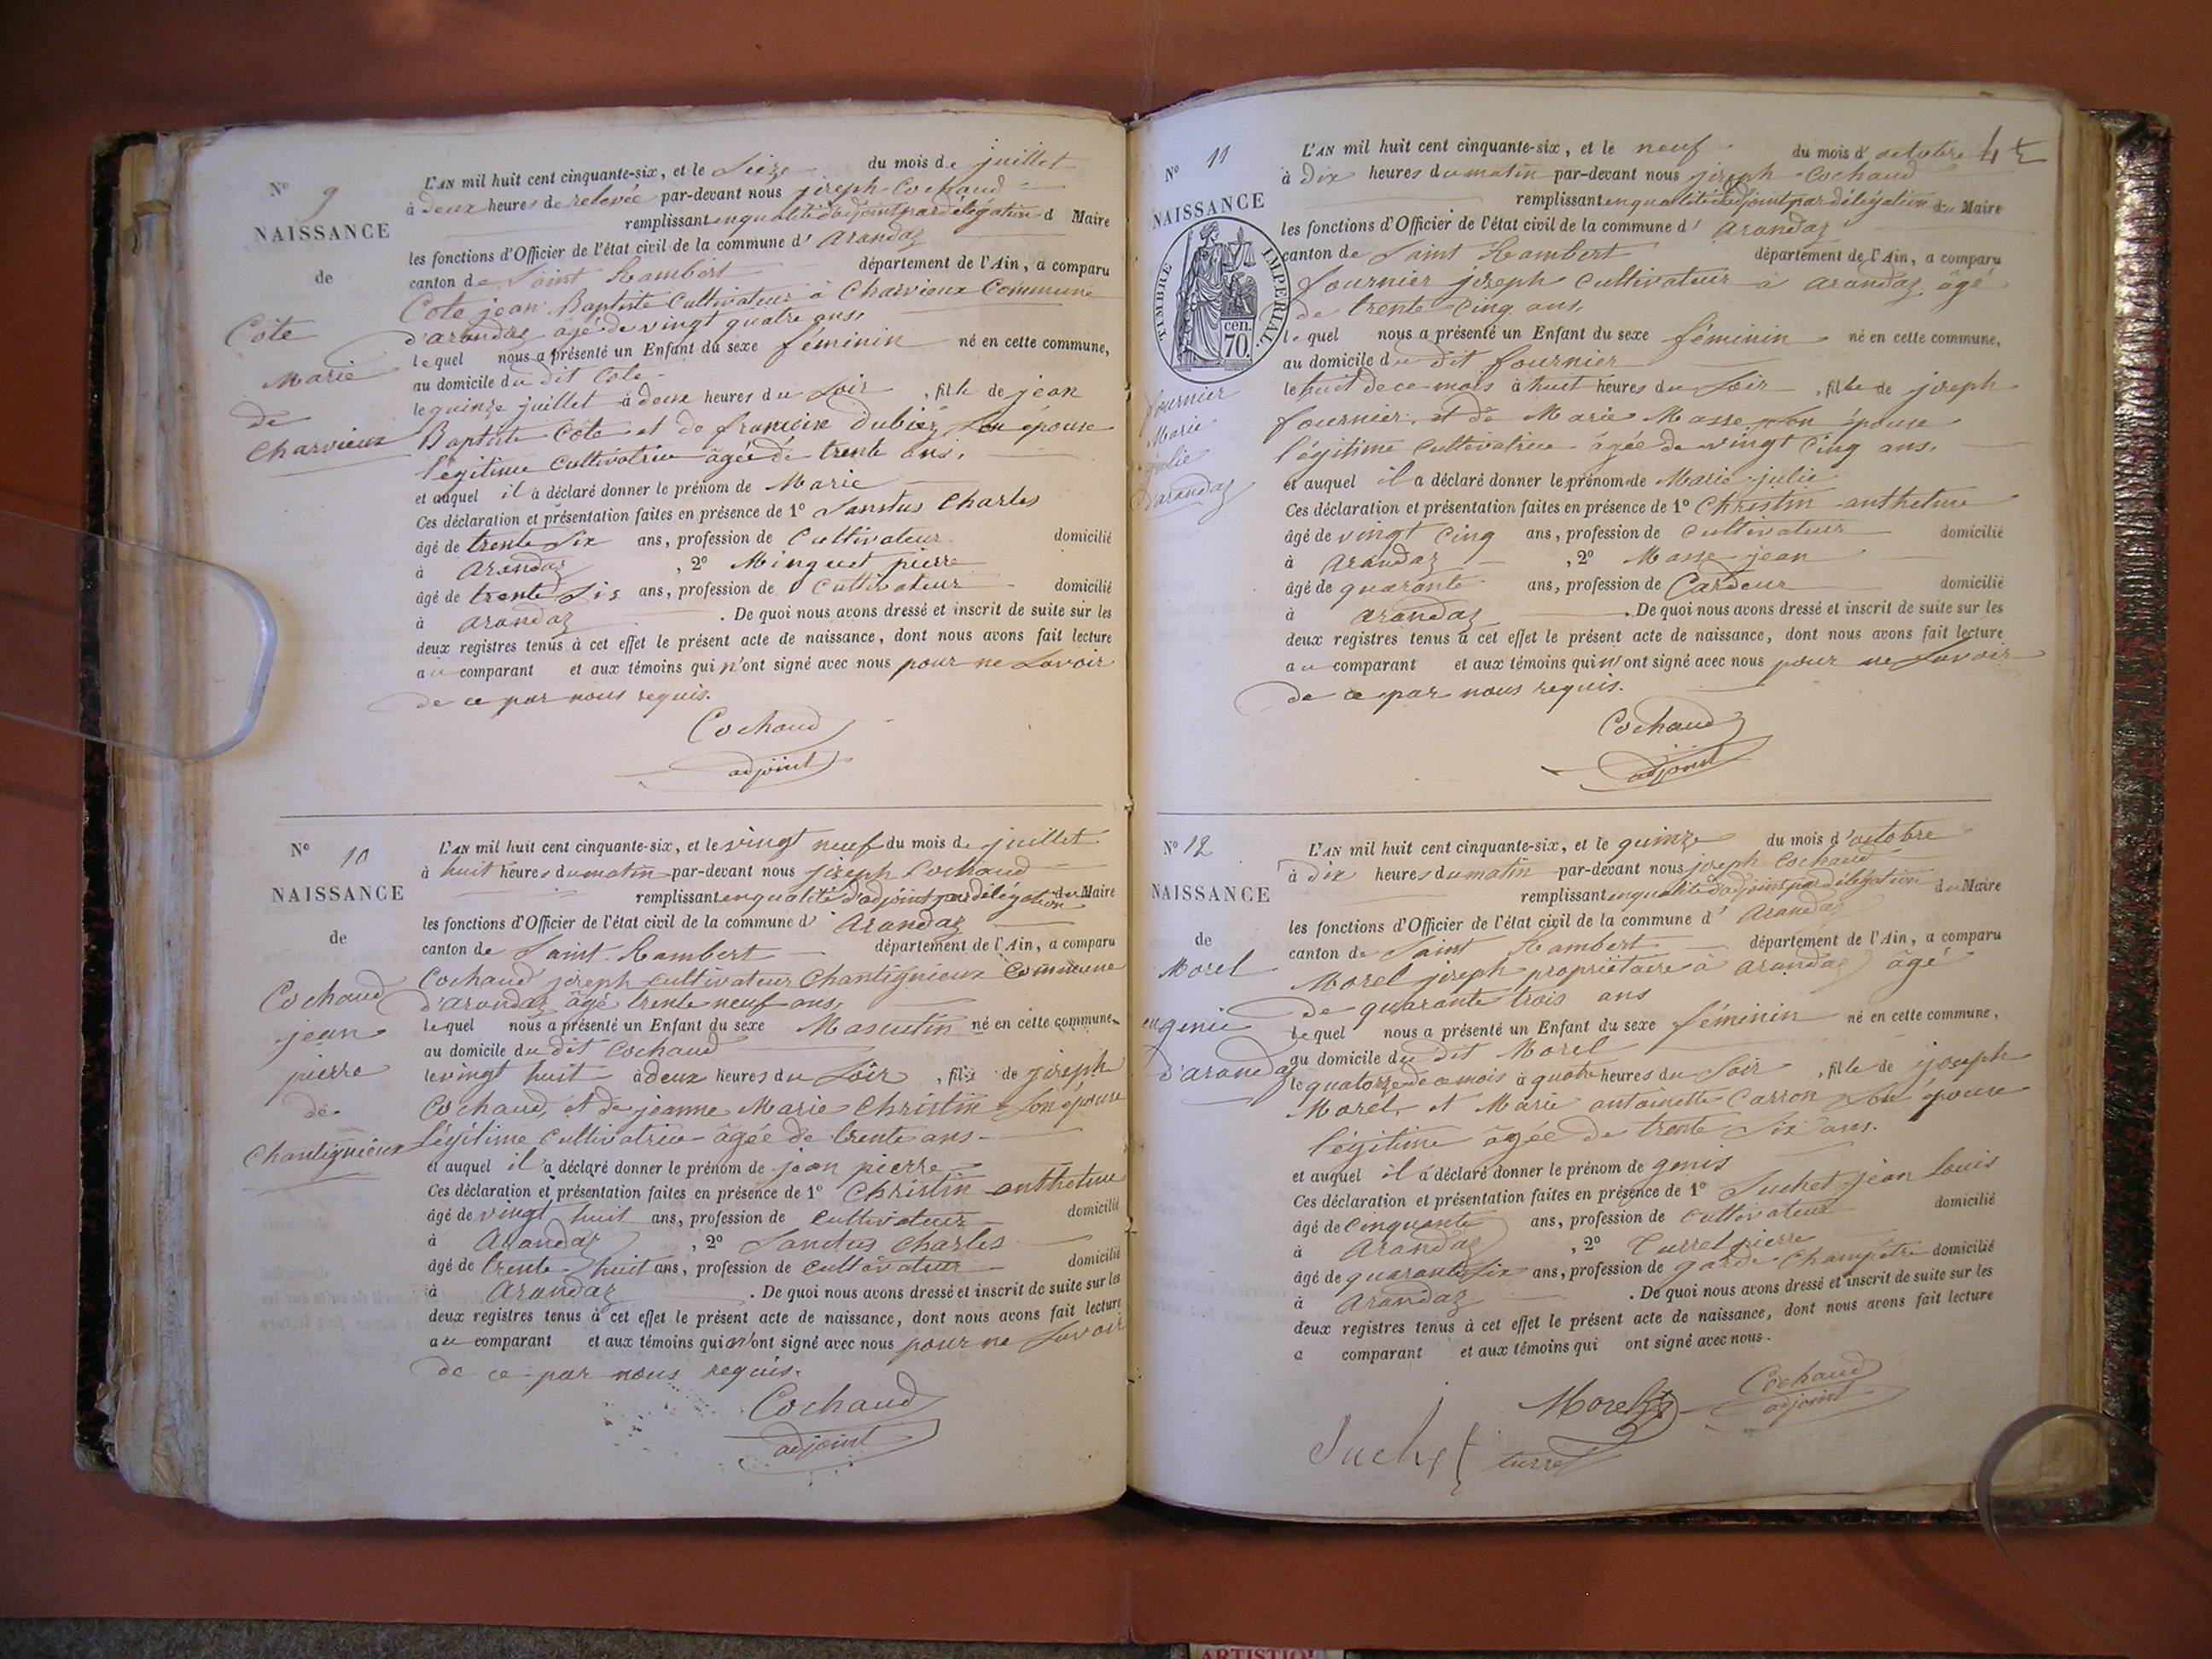 N° 9
NAISSANCE
de
Cote
Marie
de
Charvieux
L'AN mil huit cent cinquante-six, et le Seize du mois de juillet
à deux heures de relevée par-devant nous joseph Cochaud
remplissant en qualité d'adjoint par délégation d Maire
les fonctions d'Officier de l'état civil de la commune d' arandaz
canton de Saint Rambert département de l'Ain, a comparu
Cote jean Baptiste Cultivateur à Charvieux Commune
d'arandaz âgé de vingt quatre ans,
lequel nous a présenté un Enfant du sexe féminin né en cette commune,
au domicile du dit Cote
le quinze juillet à deux heures du Soir, fille de jean
Baptiste Cote et de Son épouse
légitime Cultivatrice âgée de trente ans,
et auquel il a déclaré donner le prénom de Marie
Ces déclaration et présentation faites en présence de 1° Sanctus Charles
âgé de trente Six ans, profession de Cultivateur domicilié
à Arandaz, 2° Minguet pierre
âgé de trente Six ans, profession de Cultivateur domicilié
à arandaz. De quoi nous avons dressé et inscrit de suite sur les
deux registres tenus à cet effet le présent acte de naissance, dont nous avons fait lecture
au comparant et aux témoins qui n'ont signé avec nous pour ne Savoir
de ce par nous requis.
Cochaud
adjoint
N° 10
NAISSANCE
de
Cochaud
jean
pierre
de
Chantignieux
L'AN mil huit cent cinquante-six, et le vingt neuf du mois de juillet
à huit heures du matin par-devant nous joseph Cochaud
remplissant en qualité d'adjoint par délégation du Maire
les fonctions d'Officier de l'état civil de la commune d' Arandaz
canton de Saint Rambert département de l'Ain, a comparu
Cochaud joseph cultivateur Chantignieux Commune
d'arandaz âgé trente neuf ans,
lequel nous a présenté un Enfant du sexe Masculin né en cette commune
au domicile du dit Cochaud
le vingt huit à deux heures du Soir, fils de joseph
Cochaud, et de jeanne Marie Christin Son épouse
légitime Cultivatrice âgée de trente ans
et auquel il a déclaré donner le prénom de jean pierre
Ces déclaration et présentation faites en présence de 1° Christin anthelme
âgé de vingt huit ans, profession de Cultivateur domicilié
à Arandaz, 2° Sanctus Charles
âgé de trente huit ans, profession de Cultivateur domicilié
à Arandaz. De quoi nous avons dressé et inscrit de suite sur les
deux registres tenus à cet effet le présent acte de naissance, dont nous avons fait lecture
au comparant et aux témoins qui n'ont signé avec nous pour ne Savoir
de ce par nous requis.
Cochaud
adjoint
N° 11
NAISSANCE
TIMBRE IMPERIAL.
cen.
70.
fournier
Marie
julie
d'arandaz
L'AN mil huit cent cinquante-six, et le neuf du mois d' octobre
à Dix heures du matin par-devant nous joseph Cochaud
remplissant en qualité d'adjoint par délégation du Maire
les fonctions d'Officier de l'état civil de la commune d' arandaz
canton de Saint Rambert département de l'Ain, a comparu
fournier joseph cultivateur à arandaz âgé
de trente Cinq ans,
lequel nous a présenté un Enfant du sexe féminin né en cette commune,
au domicile du dit fournier
le huit de ce mois à huit heures du Soir, fille de joseph
fournier, et de Marie Masse Son épouse
légitime cultivatrice âgée de vingt Cinq ans,
et auquel il a déclaré donner le prénom de Marie julie
Ces déclaration et présentation faites en présence de 1° Christin anthelme
âgé de vingt Cinq ans, profession de Cultivateur domicilié
à Arandaz, 2° Masse jean
âgé de quarante ans, profession de Cardeur domicilié
à arandaz. De quoi nous avons dressé et inscrit de suite sur les
deux registres tenus à cet effet le présent acte de naissance, dont nous avons fait lecture
au comparant et aux témoins qui n'ont signé avec nous pour ne Savoir
de ce par nous requis.
Cochaud
adjoint
N° 12
NAISSANCE
de
Morel
eugenie
d'arandaz
L'AN mil huit cent cinquante-six, et le quinze du mois d'octobre
à Dix heures du matin par-devant nous joseph Cochaud
remplissant en qualité d'adjoint par délégation du Maire
les fonctions d'Officier de l'état civil de la commune d' Arandaz
canton de Saint Rambert département de l'Ain, a comparu
Morel joseph propriétaire à arandaz âgé
de quarante trois ans
lequel nous a présenté un Enfant du sexe féminin né en cette commune,
au domicile du dit Morel
le quatorze de ce mois à quatre heures du Soir, fille de joseph
Morel et Marie antoinette Carron Son épouse
légitime âgée de trente Six ans.
et auquel il a déclaré donner le prénom de
Ces déclaration et présentation faites en présence de 1° Suchet jean Louis
âgé de Cinquante ans, profession de Cultivateur domicilié
à Arandaz, 2° Turrel pierre
âgé de quarante Six ans, profession de garde Champêtre domicilié
à Arandaz. De quoi nous avons dressé et inscrit de suite sur les
deux registres tenus à cet effet le présent acte de naissance, dont nous avons fait lecture
a comparant et aux témoins qui ont signé avec nous.
Morel Cochaud
adjoint
Suchet turrel
ARTISTIQ